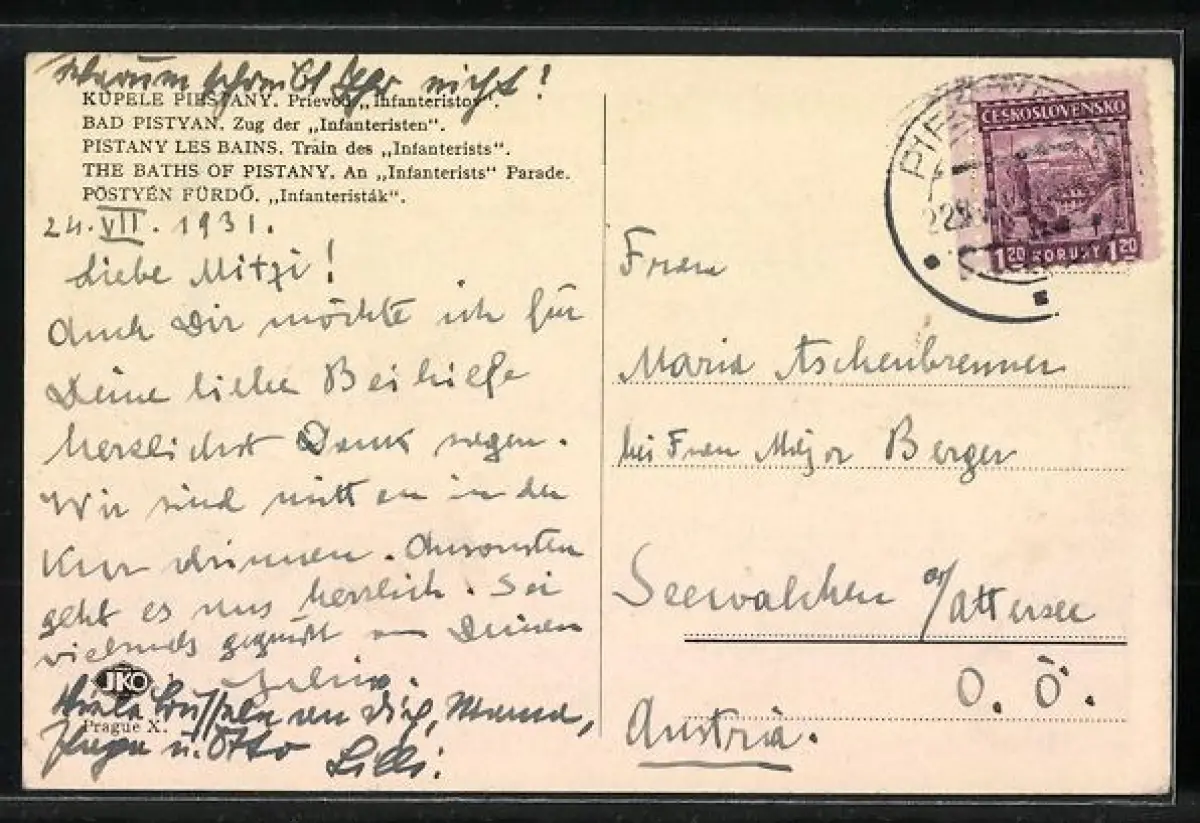 Warum schreibt Ihr nicht!
KÚPELE PIEŠŤANY. Prievod „Infanteristov".
BAD PISTYAN. Zug der „Infanteristen".
PISTANY LES BAINS. Train des „Infanterists".
THE BATHS OF PISTANY. An „Infanterists" Parade.
PÖSTYÉN FÜRDŐ. „Infanteristák".
24. VII. 1931.
Liebe Mitzi!
Auch Dir möchte ich für
Deine liebe Beihilfe
herzlichst Dank sagen.
Wir sind mitten in der
Kur drinnen. Ansonsten
geht es uns herrlich. Sei
vielmals gegrüßt von Deinem
JKO
Prague X.
Viele Busseln an Dich, Mama,
u. Otto
Lilli.
PIEŠŤANY
22
ČESKOSLOVENSKO
1.20 KORUNY 1.20
Frau
Maria Aschenbrenner
bei Frau Major Berger
Seewalchen a/Attersee
O. Ö.
Austria.